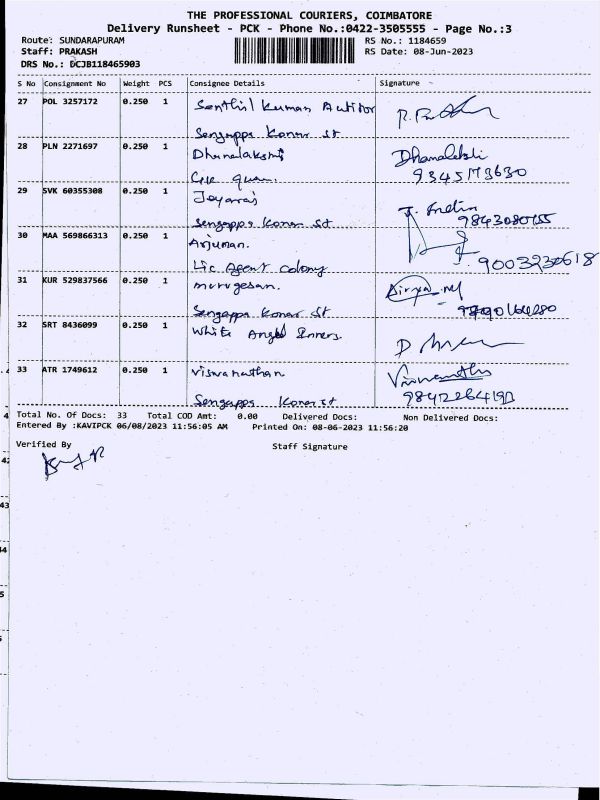 THE PROFESSIONAL COURIERS, COIMBATORE
Delivery Runsheet - PCK - Phone No.:0422-3505555 - Page No.:3
Route: SUNDARAPURAM
RS No.: 1184659
Staff: PRAKASH
RS Date: 08-Jun-2023
DRS No.: DCJB118465903
S No Consignment No Weight PCS Consignee Details Signature
27 POL 3257172 0.250 1 Senthil kumar Auditor
Sengappa Konar st
28 PLN 2271697 0.250 1 Dhanalakshmi Dhanalakshi
9345173630
29 SVK 60355308 0.250 1 Jeyaraj
Sengappa Konar St
30 MAA 569866313 0.250 1 Anjuman.
9003230618
Lic Agent colony
31 KUR 529837566 0.250 1 murugesan.
Sengappa Konar St
32 SRT 8436099 0.250 1 White Angel Inners.
33 ATR 1749612 0.250 1 Viswanathan
Sengappa Konar st
Total No. Of Docs: 33 Total COD Amt: 0.00 Delivered Docs: Non Delivered Docs:
Entered By :KAVIPCK 06/08/2023 11:56:05 AM Printed On: 08-06-2023 11:56:20
Verified By Staff Signature